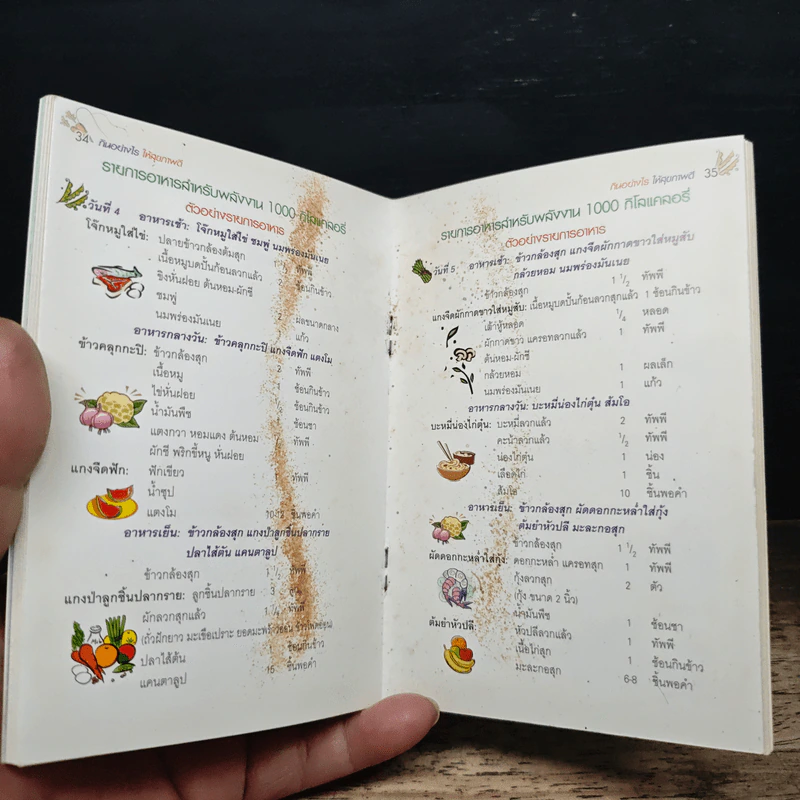 34 กินอย่างไร ให้สุขภาพดี
รายการอาหารสำหรับพลังงาน 1000 กิโลแคลอรี่
ตัวอย่างรายการอาหาร
วันที่ 4 อาหารเช้า: โจ๊กหมูใส่ไข่ ชมพู่ นมพร่องมันเนย
โจ๊กหมูใส่ไข่: ปลายข้าวกล้องต้มสุก ทัพพี
เนื้อหมูบดปั้นก้อนลวกแล้ว
ขิงหั่นฝอย ต้นหอม-ผักชี ช้อนกินข้าว
ชมพู่
นมพร่องมันเนย 2 ผลขนาดกลาง
แก้ว
อาหารกลางวัน: ข้าวคลุกกะปิ แกงจืดฟัก แตงโม
ข้าวคลุกกะปิ: ข้าวกล้องสุก 2 ทัพพี
เนื้อหมู ช้อนกินข้าว
ไข่หั่นฝอย ช้อนกินข้าว
น้ำมันพืช ช้อนชา
แตงกวา หอมแดง ต้นหอม ทัพพี
ผักชี พริกขี้หนู หั่นฝอย
แกงจืดฟัก: ฟักเขียว ทัพพี
น้ำซุป
แตงโม 10-12 ชิ้นพอคำ
อาหารเย็น: ข้าวกล้องสุก แกงป่าลูกชิ้นปลากราย
ปลาไส้ตัน แคนตาลูป
ข้าวกล้องสุก 1 ทัพพี
แกงป่าลูกชิ้นปลากราย: ลูกชิ้นปลากราย 3
ผักลวกสุกแล้ว ทัพพี
(ถั่วฝักยาว มะเขือเปราะ
ปลาไส้ตัน ช้อนกินข้าว
แคนตาลูป 15 ชิ้นพอคำ
กินอย่างไร ให้สุขภาพดี 35
รายการอาหารสำหรับพลังงาน 1000 กิโลแคลอรี่
ตัวอย่างรายการอาหาร
วันที่ 5 อาหารเช้า: ข้าวกล้องสุก แกงจืดผักกาดขาวใส่หมูสับ
กล้วยหอม นมพร่องมันเนย
ข้าวกล้องสุก 1 1/2 ทัพพี
แกงจืดผักกาดขาวใส่หมูสับ: เนื้อหมูบดปั้นก้อนลวกสุกแล้ว 1 ช้อนกินข้าว
เต้าหู้หลอด 1/4 หลอด
ผักกาดขาว แครอทลวกแล้ว 1 ทัพพี
ต้นหอม-ผักชี
กล้วยหอม 1 ผลเล็ก
นมพร่องมันเนย 1 แก้ว
อาหารกลางวัน: บะหมี่น่องไก่ตุ๋น ส้มโอ
บะหมี่น่องไก่ตุ๋น: บะหมี่ลวกแล้ว 2 ทัพพี
คะน้าลวกแล้ว 1/2 ทัพพี
น่องไก่ตุ๋น 1 น่อง
เลือดไก่ 1 ชิ้น
ส้มโอ 10 ชิ้นพอคำ
อาหารเย็น: ข้าวกล้องสุก ผัดดอกกะหล่ำใส่กุ้ง
ต้มยำหัวปลี มะละกอสุก
ข้าวกล้องสุก 1 1/2 ทัพพี
ผัดดอกกะหล่ำใส่กุ้ง: ดอกกะหล่ำ แครอทสุก 1 ทัพพี
กุ้งลวกสุก 2 ตัว
(กุ้ง ขนาด 2 นิ้ว)
น้ำมันพืช 1 ช้อนชา
ต้มยำหัวปลี: หัวปลีลวกแล้ว 1 ทัพพี
เนื้อไก่สุก 1 ช้อนกินข้าว
มะละกอสุก 6-8 ชิ้นพอคำ